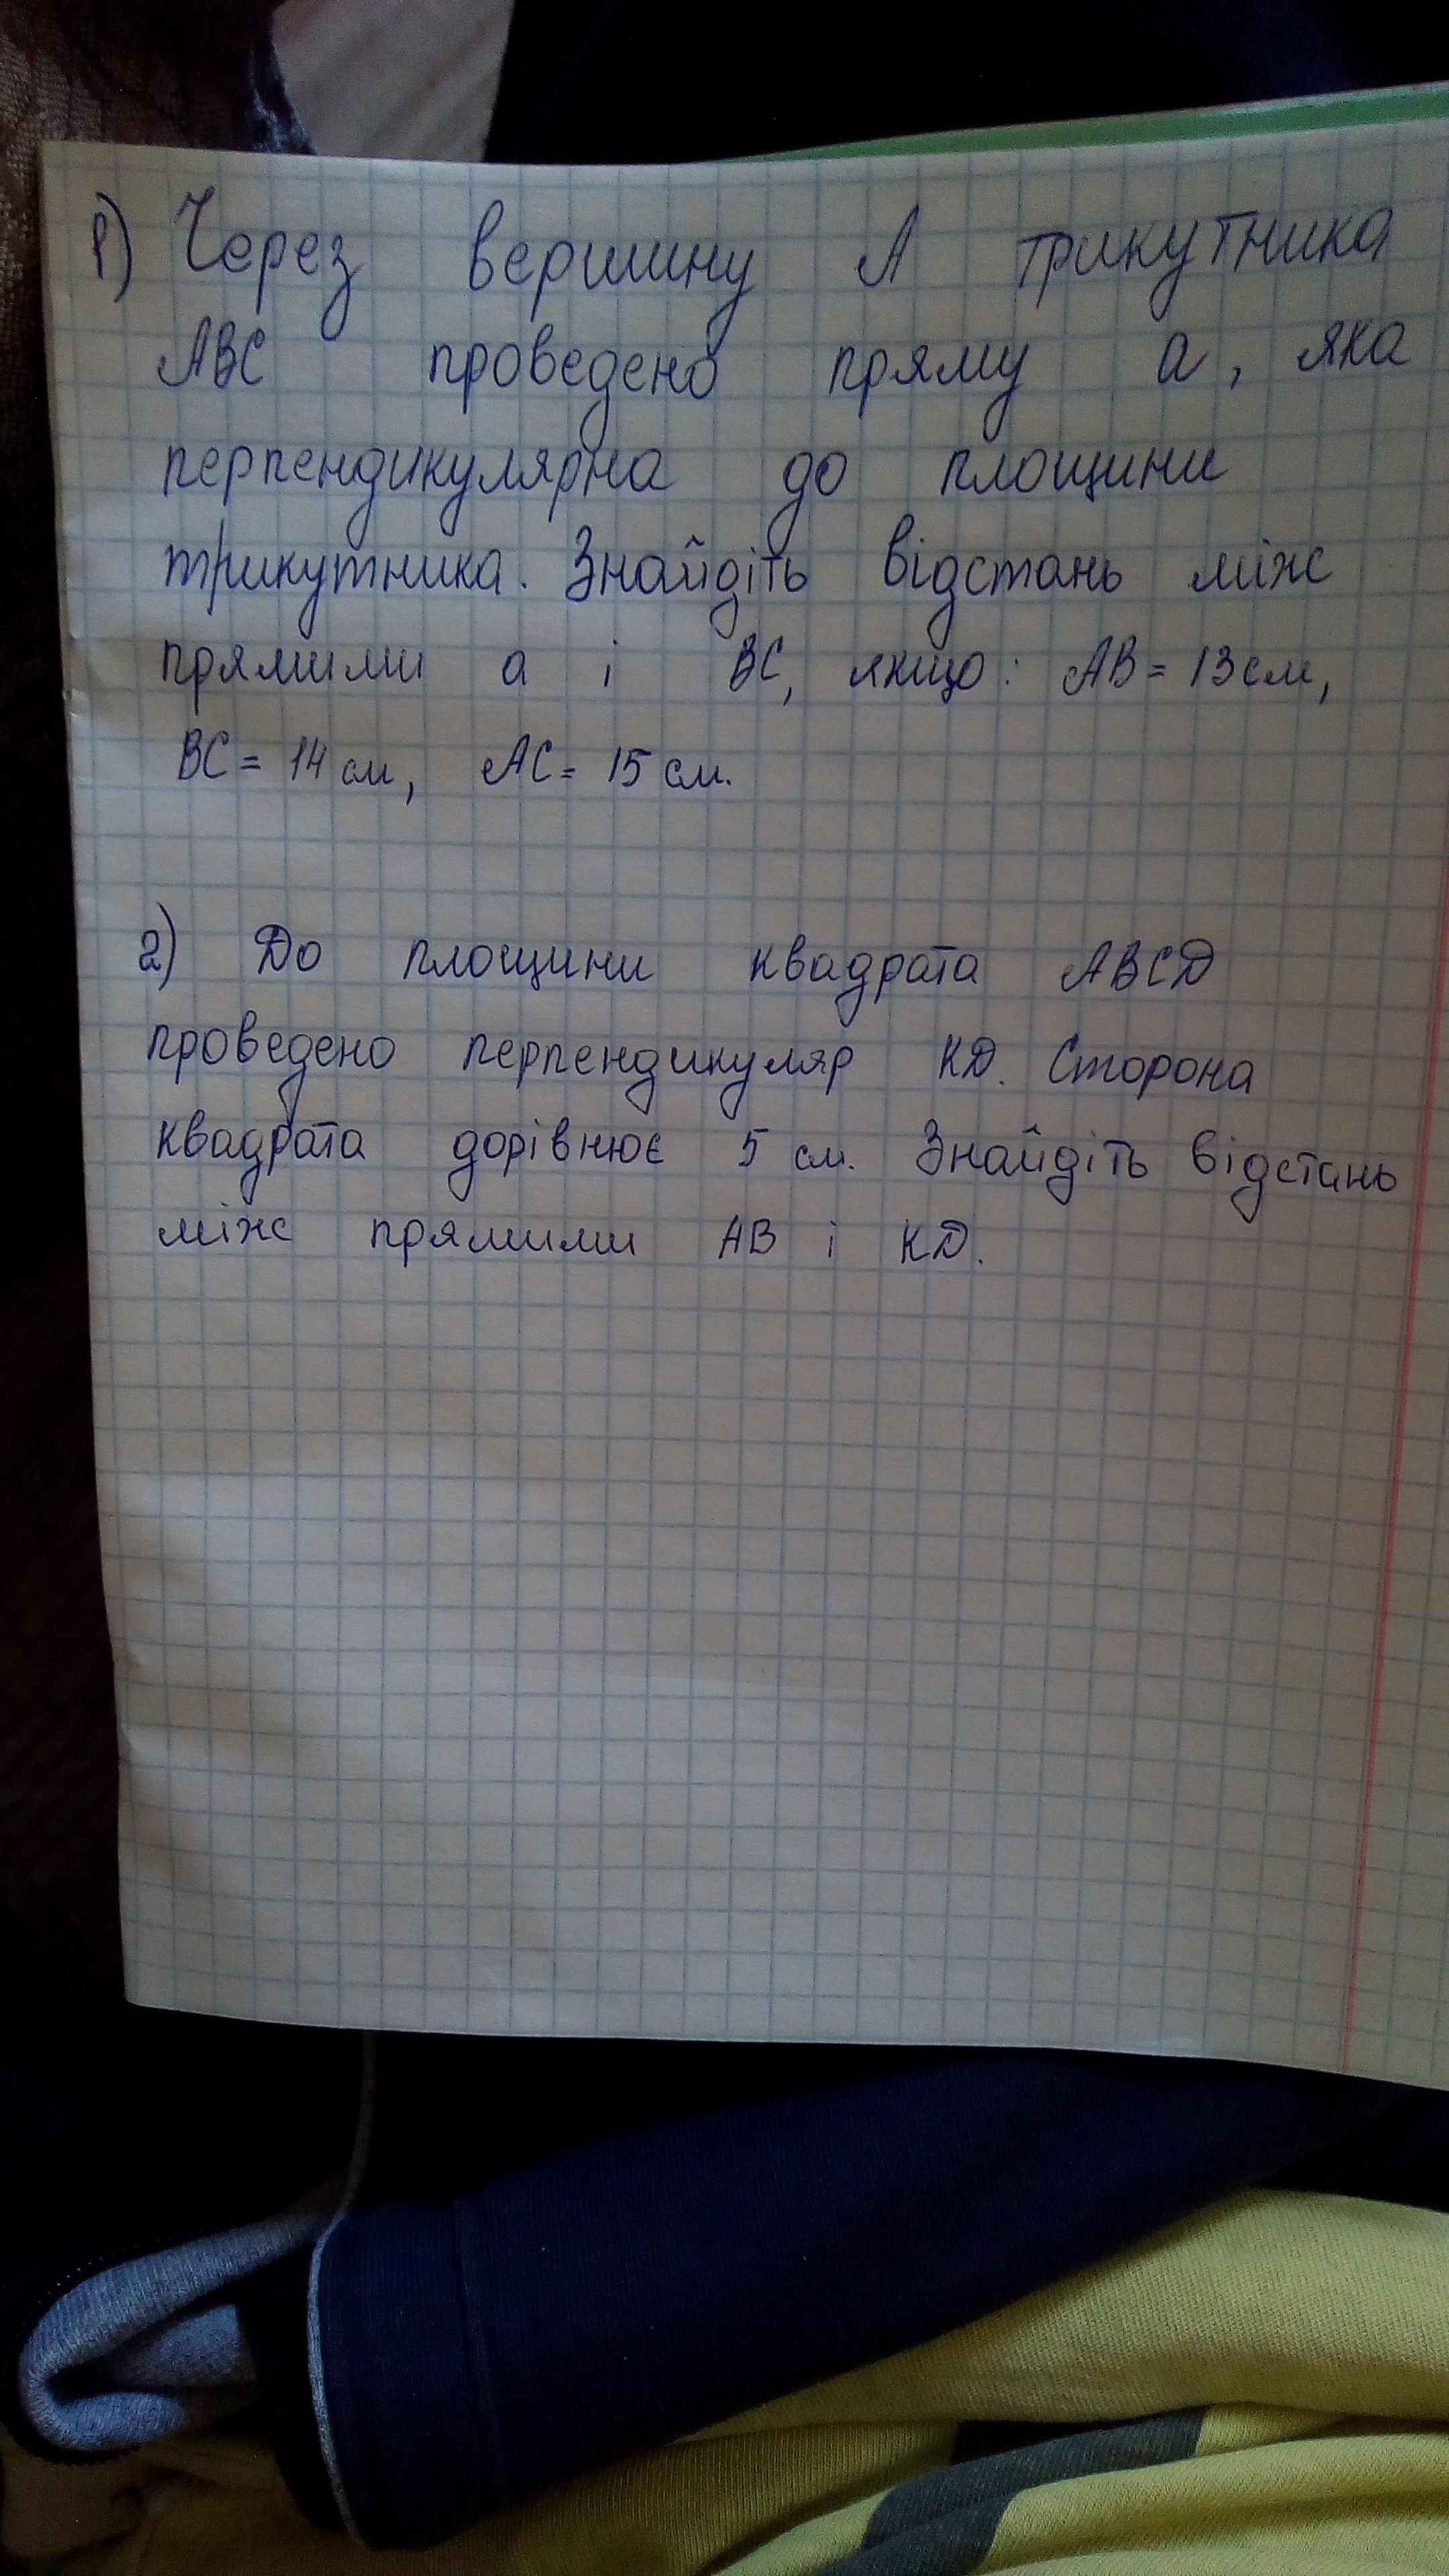 1) Через вершину А трикутника
АВС проведено пряму а, яка
перпендикулярна до площини
трикутника. Знайдіть відстань між
прямими а і ВС, якщо: АВ = 13 см,
ВС = 14 см, АС = 15 см.
2) До площини квадрата ABCD
проведено перпендикуляр KD. Сторона
квадрата дорівнює 5 см. Знайдіть відстань
між прямими АВ і KD.